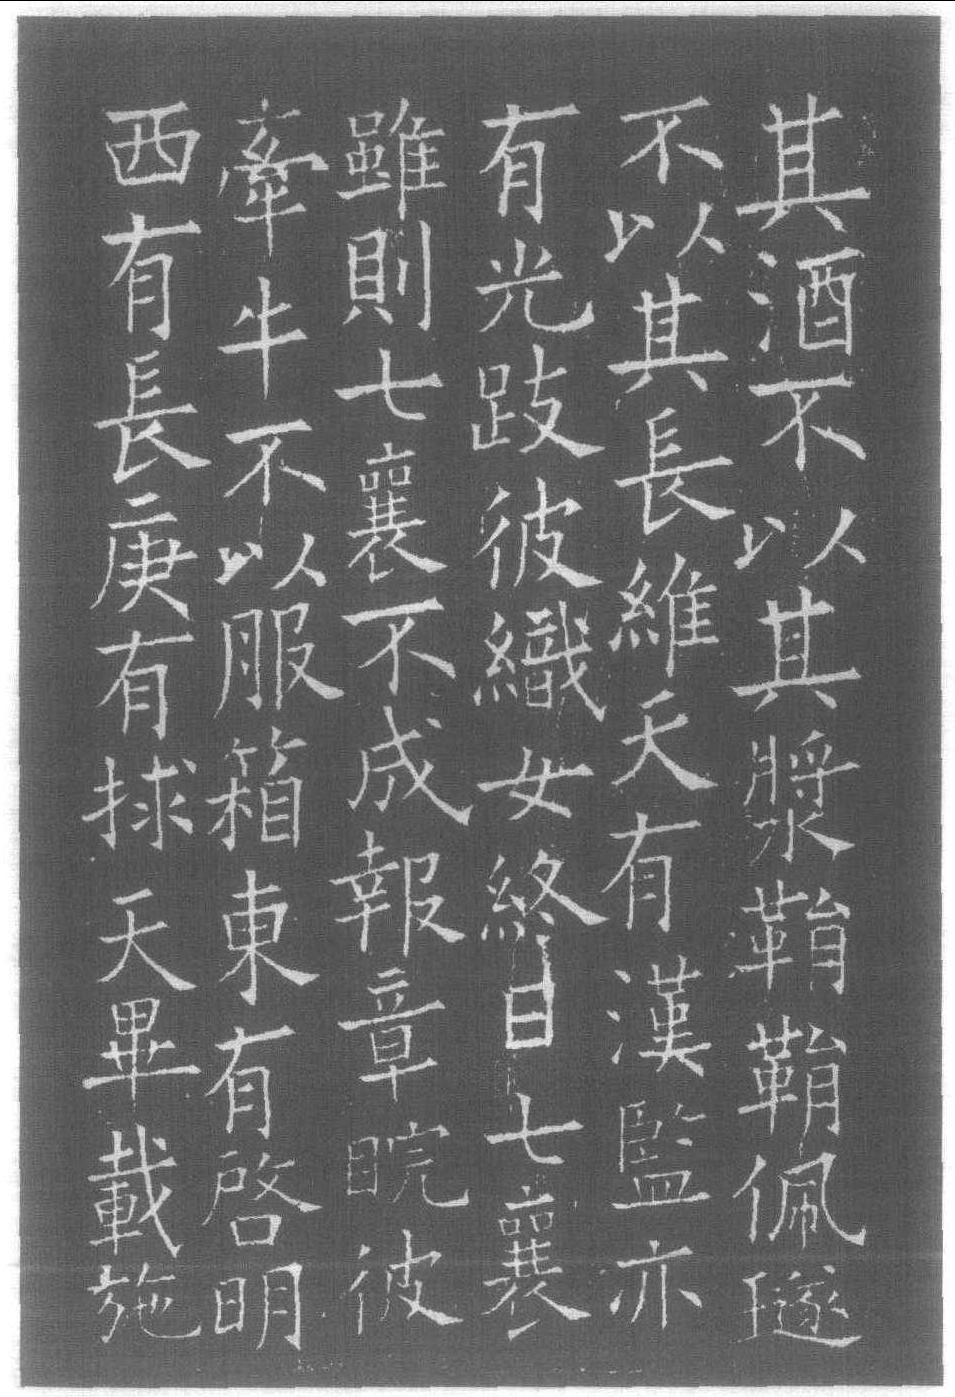 其酒不以其漿鞙鞙佩璲
不以其長維天有漢監亦
有光跂彼織女終日七襄
雖則七襄不成報章睆彼
牽牛不以服箱東有啓明
西有長庚有捄天畢載施